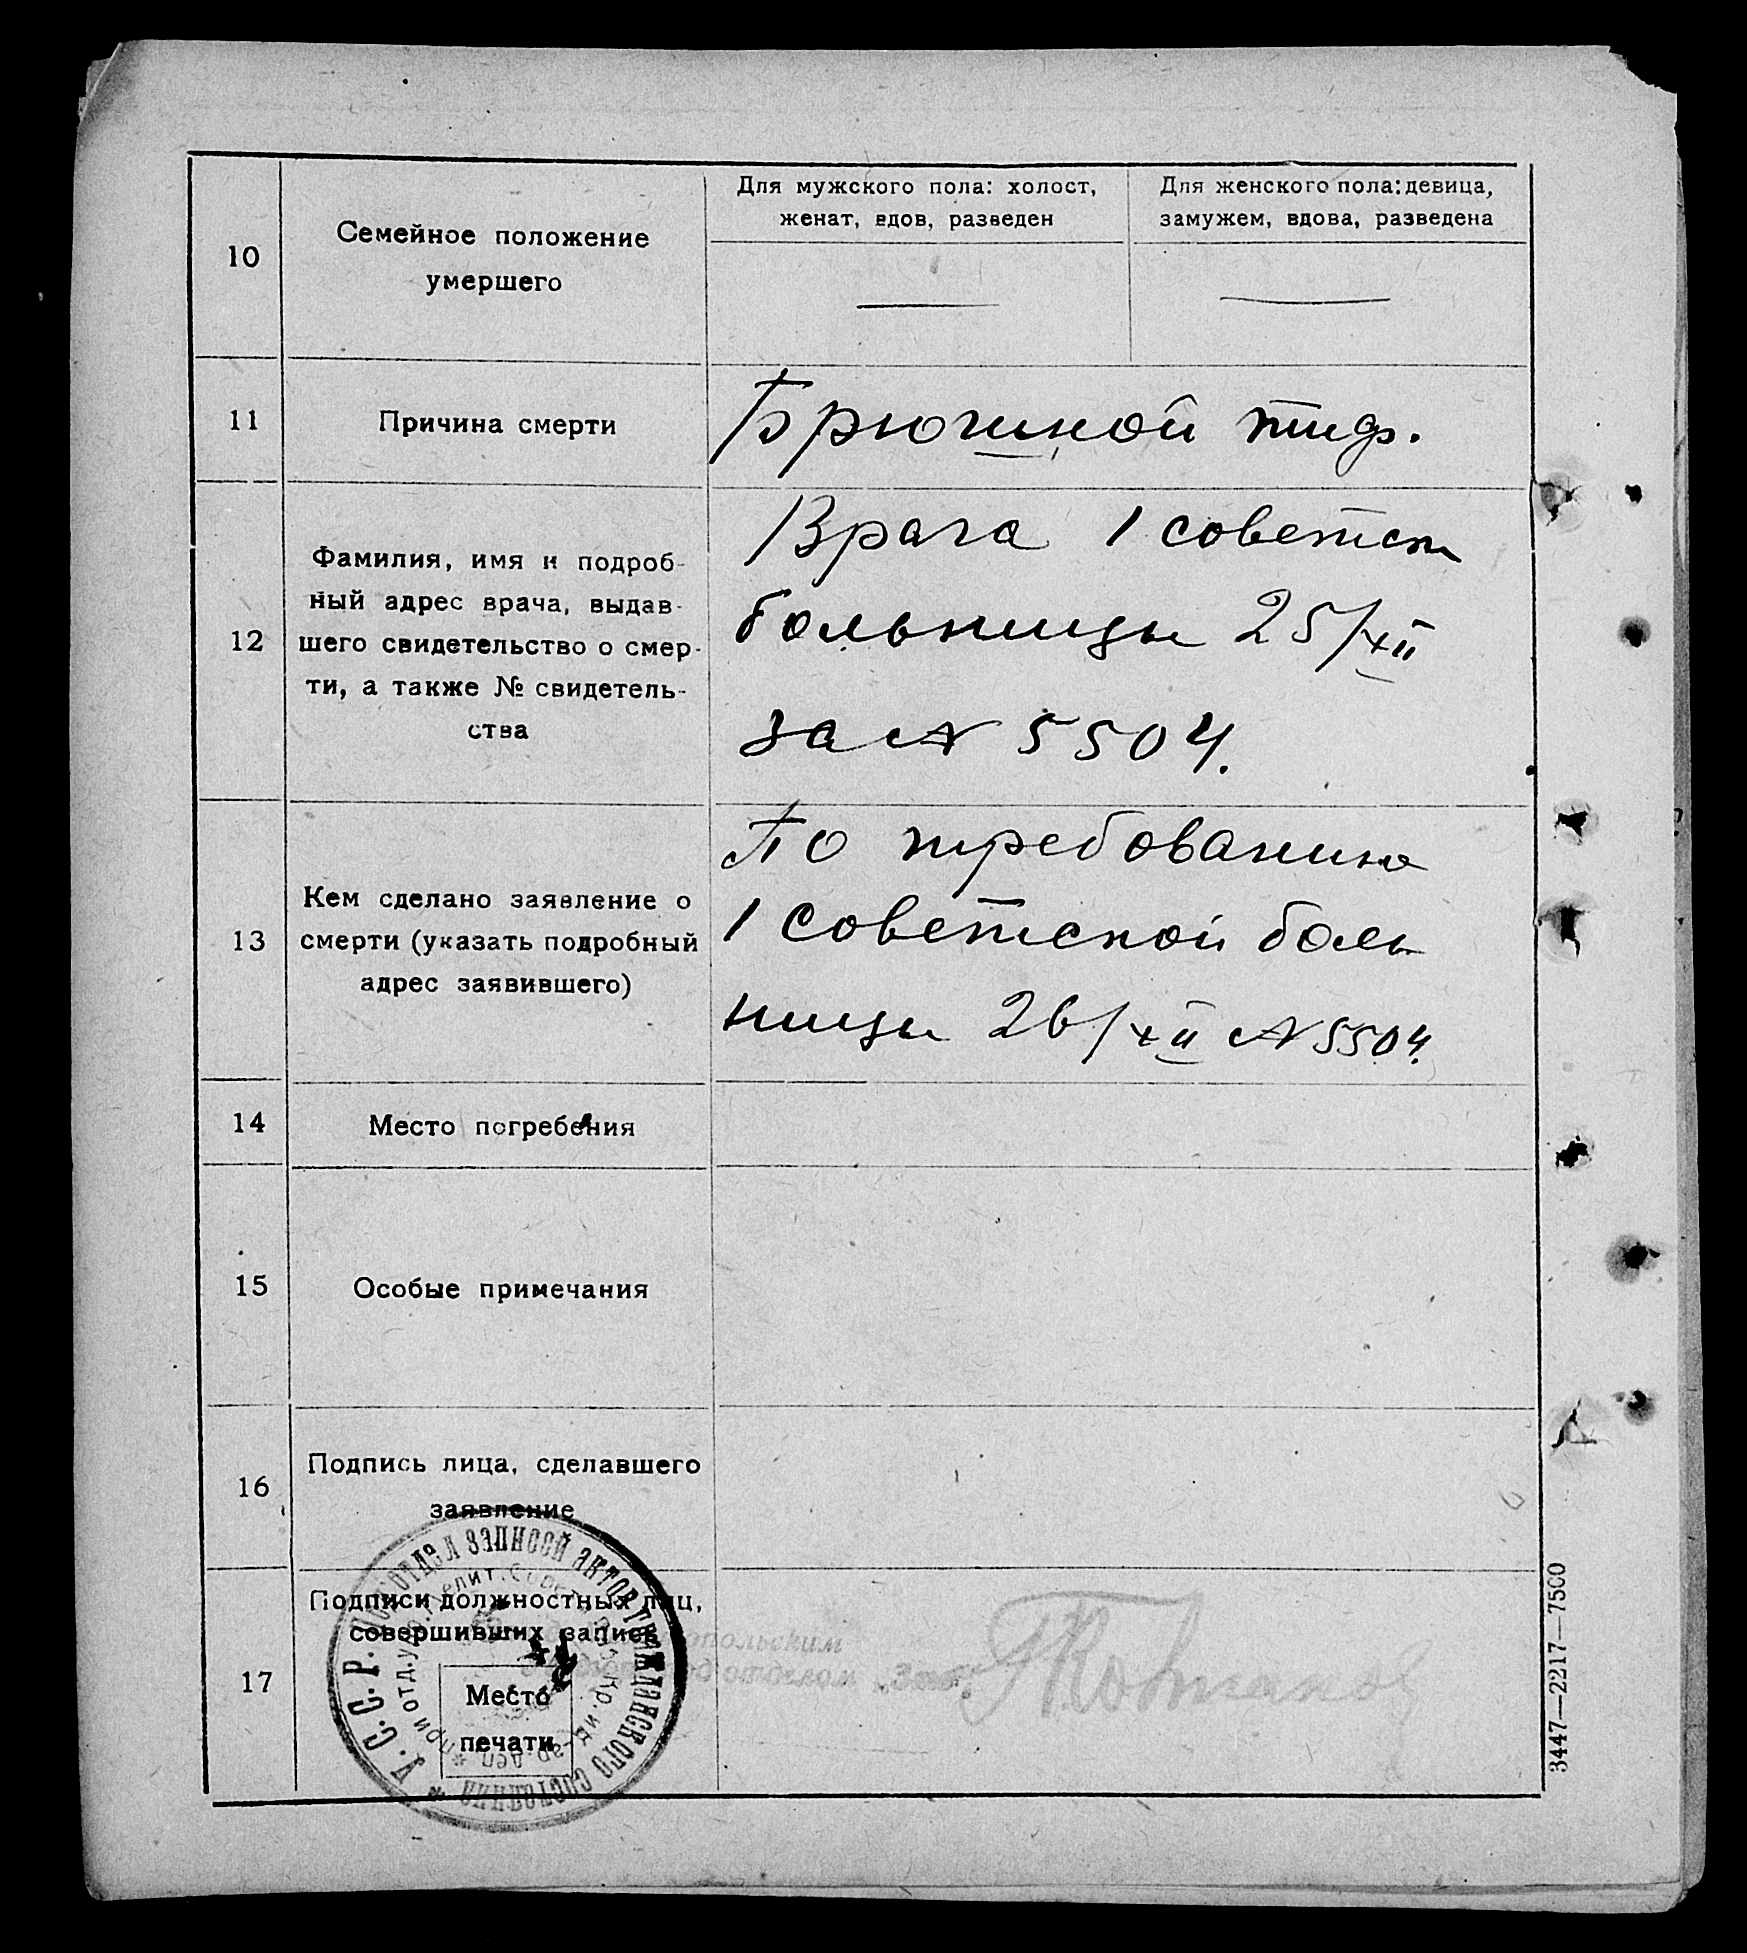 10
Семейное положение
умершего
Для мужского пола: холост,
женат, вдов, разведен
Для женского пола: девица,
замужем, вдова, разведена
11
Причина смерти
Брюшной тиф.
12
Фамилия, имя и подроб-
ный адрес врача, выдав-
шего свидетельство о смер-
ти, а также № свидетель-
ства
Врача 1 советск
больницы 25/XII
за № 5504.
13
Кем сделано заявление о
смерти (указать подробный
адрес заявившего)
По требованию
1 советской боль
ницы 26/XII № 5504.
14
Место погребения
15
Особые примечания
16
Подпись лица, сделавшего
заявление
17
Подписи должностных лиц,
совершивших запись
Место
печати
У.С.С.Р. отдел записей актов гражданского состояния
3447—2217—7500